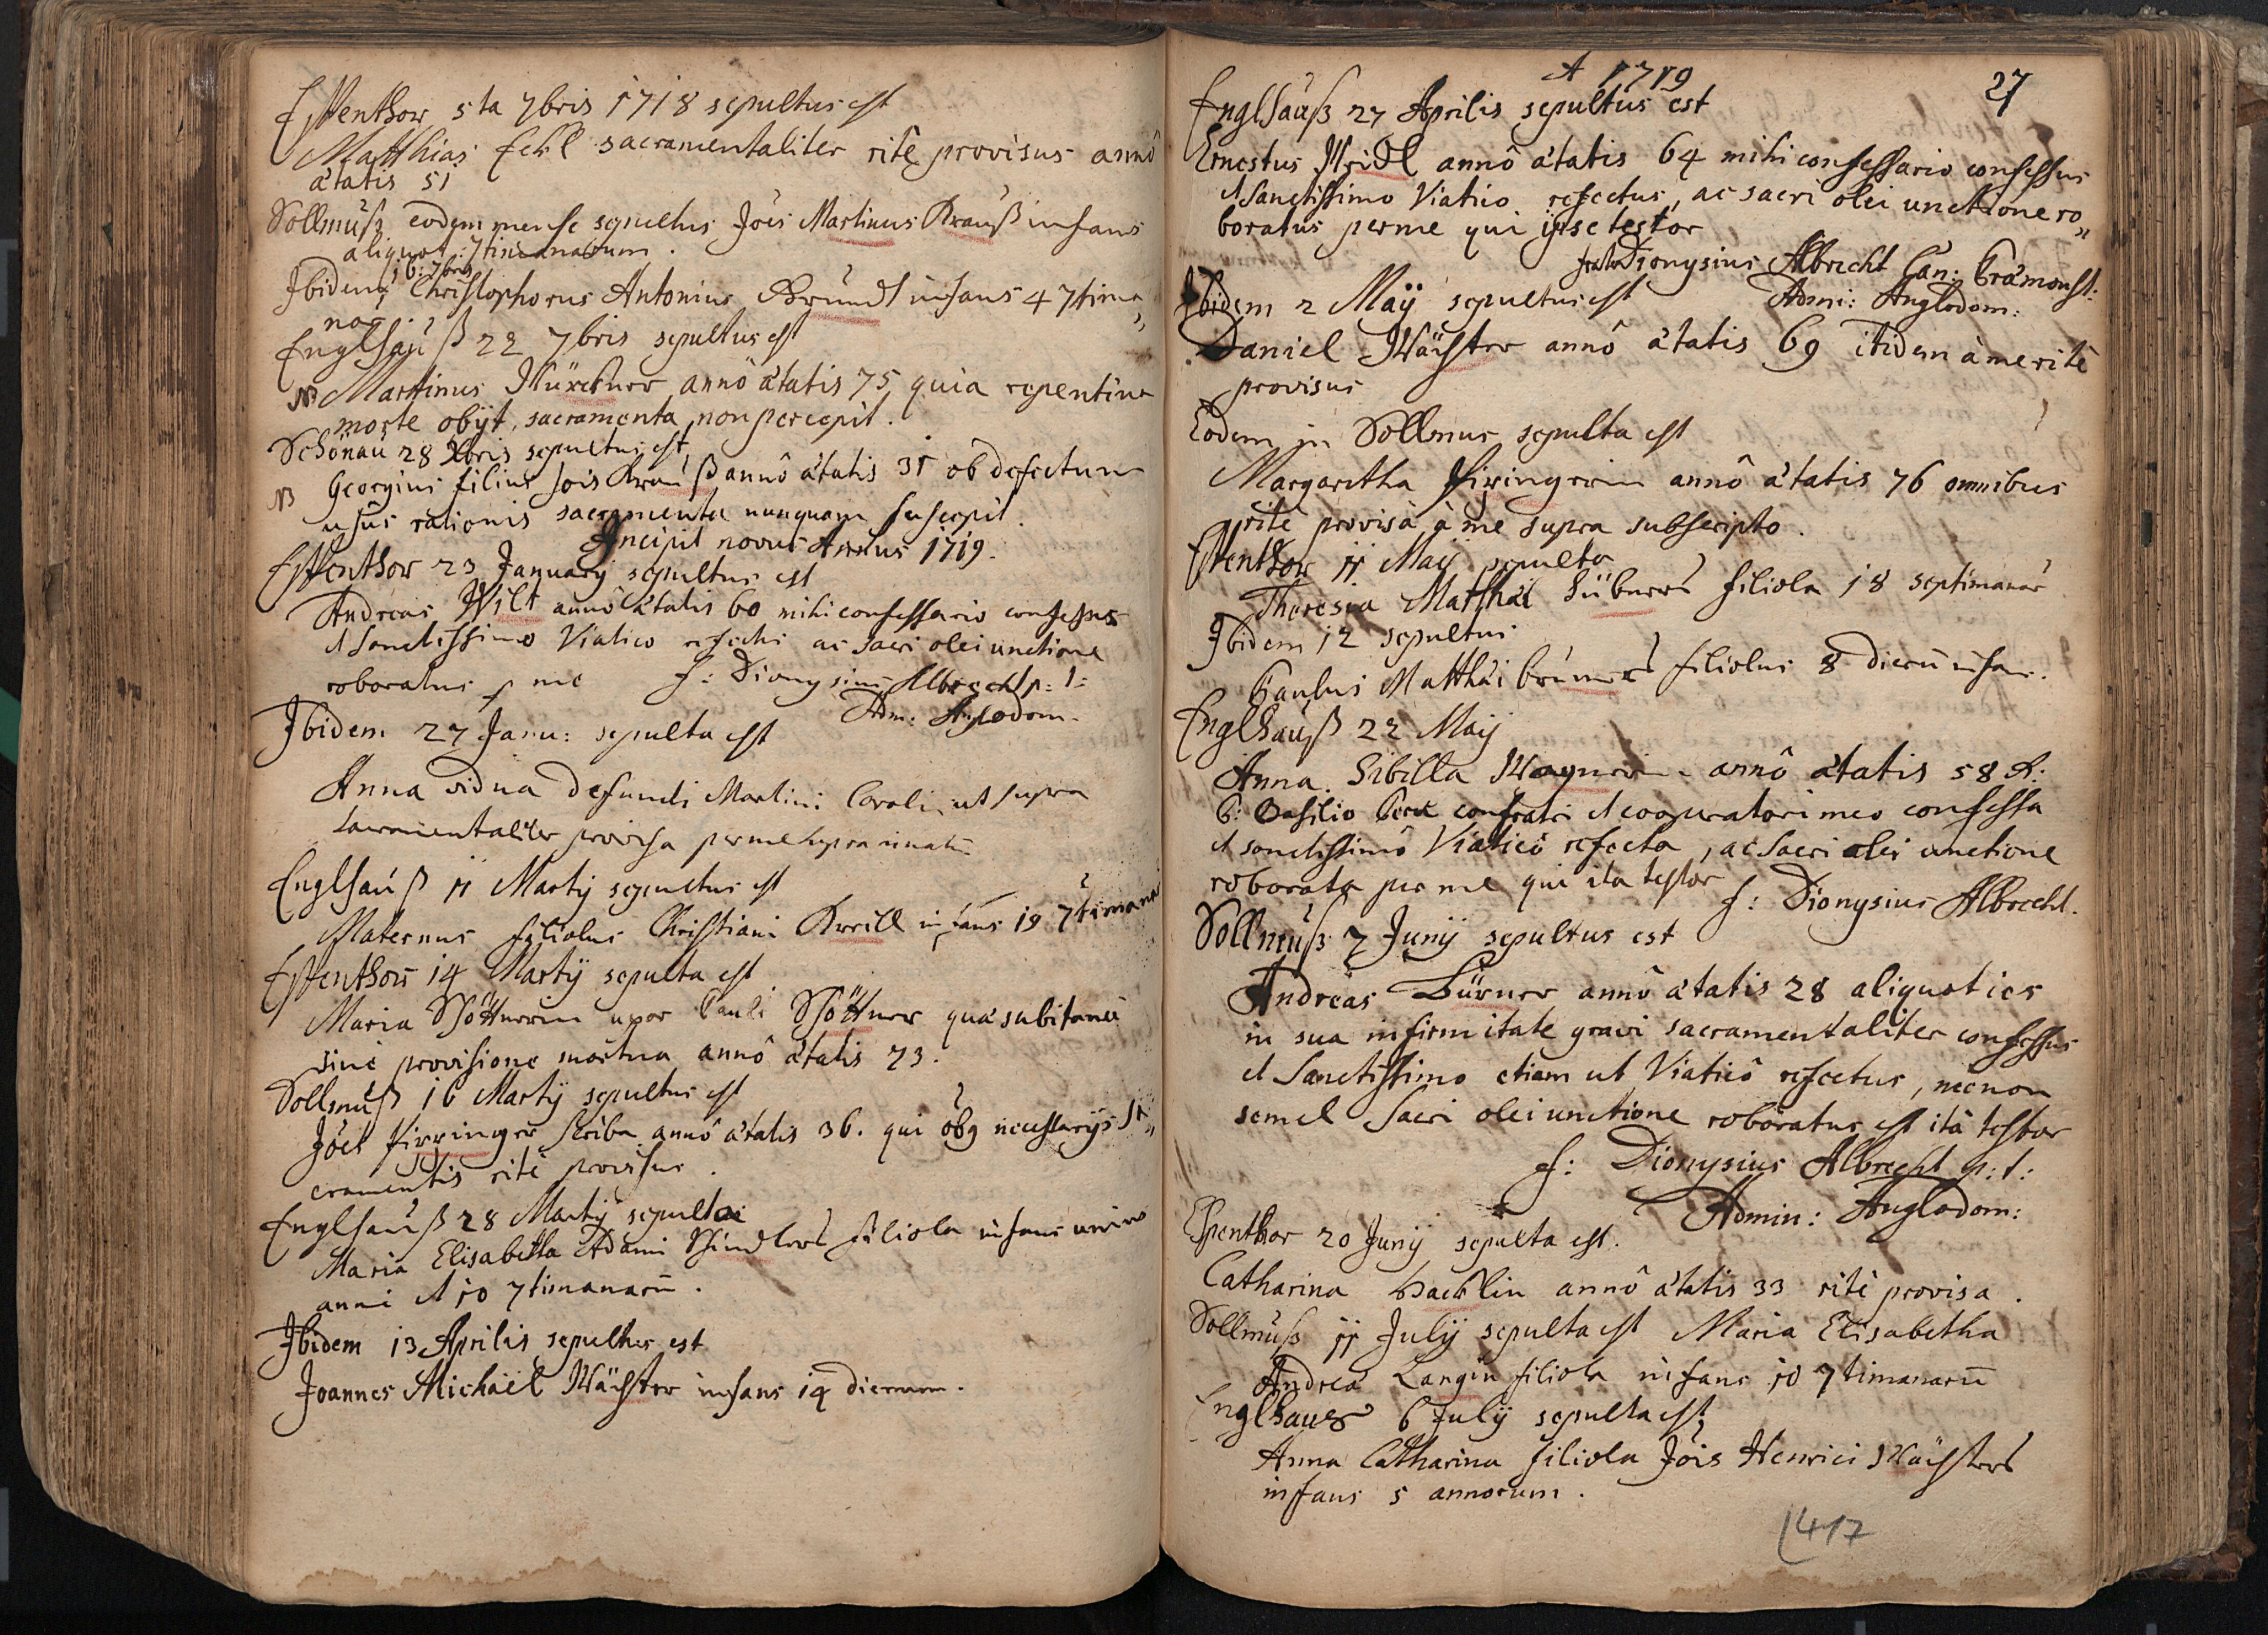 Espenthor 5ta 7bris 1718 sepultus est
Matthias sacramentaliter ritè provisus annô
ætatis 51
Sollmuß eodem mense sepultus Jōis Martinus Krauß infans
aliquot 7timanarum.
Ibidem 16: 7bris Christophorus Antonius infans 4 7tima„
nar
Englhauß 22 7bris sepultus est
NB Martinus annô ætatis 75, quia repentina
morte obijt, sacramenta non percepit.
Schönau 28 Xbris sepultus est
NB Georgius filius Jōis Krauß annô ætatis 31 ob defectum
usûs rationis sacramenta nunquam suscepit.
Incipit novus Annus 1719.
Espenthor 23 January sepultus est
Andreas Wilt annô ætatis 60 mihi confessario confessus
et Sanctissimo Viatico refectus ac sacri olei unctione
roboratus p me f: Dionysius Albrecht p: t:
Adm: Anglodom.
Ibidem 27 Janu: sepulta est
Anna vidua defuncti Martini Caroli ut supra
sacramentaliter provisa per me supra
Englhauß 11 Martij sepultus est
Maternus filiolus Christiani infans 19 7timana
Espenthor 14 Martij sepulta est
Maria Schöttnerin uxor Pauli Schöttner quæ subitanê
sine provisione mortua annô ætatis 73.
Sollmuß 16 Martij sepultus est
Jōes Firringer scriba annô ætatis 36. qui oībg necessarijs sa„
cramentis ritè provisus.
Englhauß 28 Martij sepulta
Maria Elisabetha Adami Schindlers filiola infans unius
anni et 10 7timanarū.
Ibidem 13 Aprilis sepultus est
Joannes Michaël Wächter infans 14 dierum.
A 1719
27
Englhauß 27 Aprilis sepultus est
Ernestus annô ætatis 64 mihi confessario confessus
et Sanctissimo Viatico refectus, ac sacri olei unctione ro„
boratus per me qui ipse testor
frater Dionysius Albrecht Can: Præmonst:
Admi: Anglodom:
Ibidem 2 Maij sepultus est
Daniel Wächter annô ætatis 69 itidem à me ritè
provisus
Eodem in Sollmus sepulta est
Margaretha Firingerin annô ætatis 76 omnibus
ritè provisa à me supra subscripto.
Espenthor 11 Maij sepulta
Theresia Matthæi filiola 18 septimanar
Ibidem 12 sepultus
Paulus Matthæi filiolus 8 dierū infans.
Englhauß 22 Maij
Anna Sibilla Wagnerin annô ætatis 58 A:
P: Basilio confratri et cooperatori meo confessa
et sanctissimô Viaticô refecta, ac sacri olei unctione
roborata per me qui ita testor f: Dionysius Albrecht.
Sollmuß 7 Junij sepultus est
Andreas annô ætatis 28 aliquoties
in sua infirmitate gravi sacramentaliter confessus
et Sanctissimo etiam ut Viaticô refectus, necnon
semel sacri olei unctione roboratus est ità testor
f: Dionysius Albrecht p: t:
Admin: Anglodom:
Espenthor 20 Junij sepulta est.
Catharina annô ætatis 33 ritè provisa.
Sollmuß 11 Julij sepulta est Maria Elisabetha
Andreæ Langin filiola infans 10 7timanarū
Englhaus 6 Julij sepulta est
Anna Catharina filiola Jōis Henrici Wächters
infans 5 annorum.
147